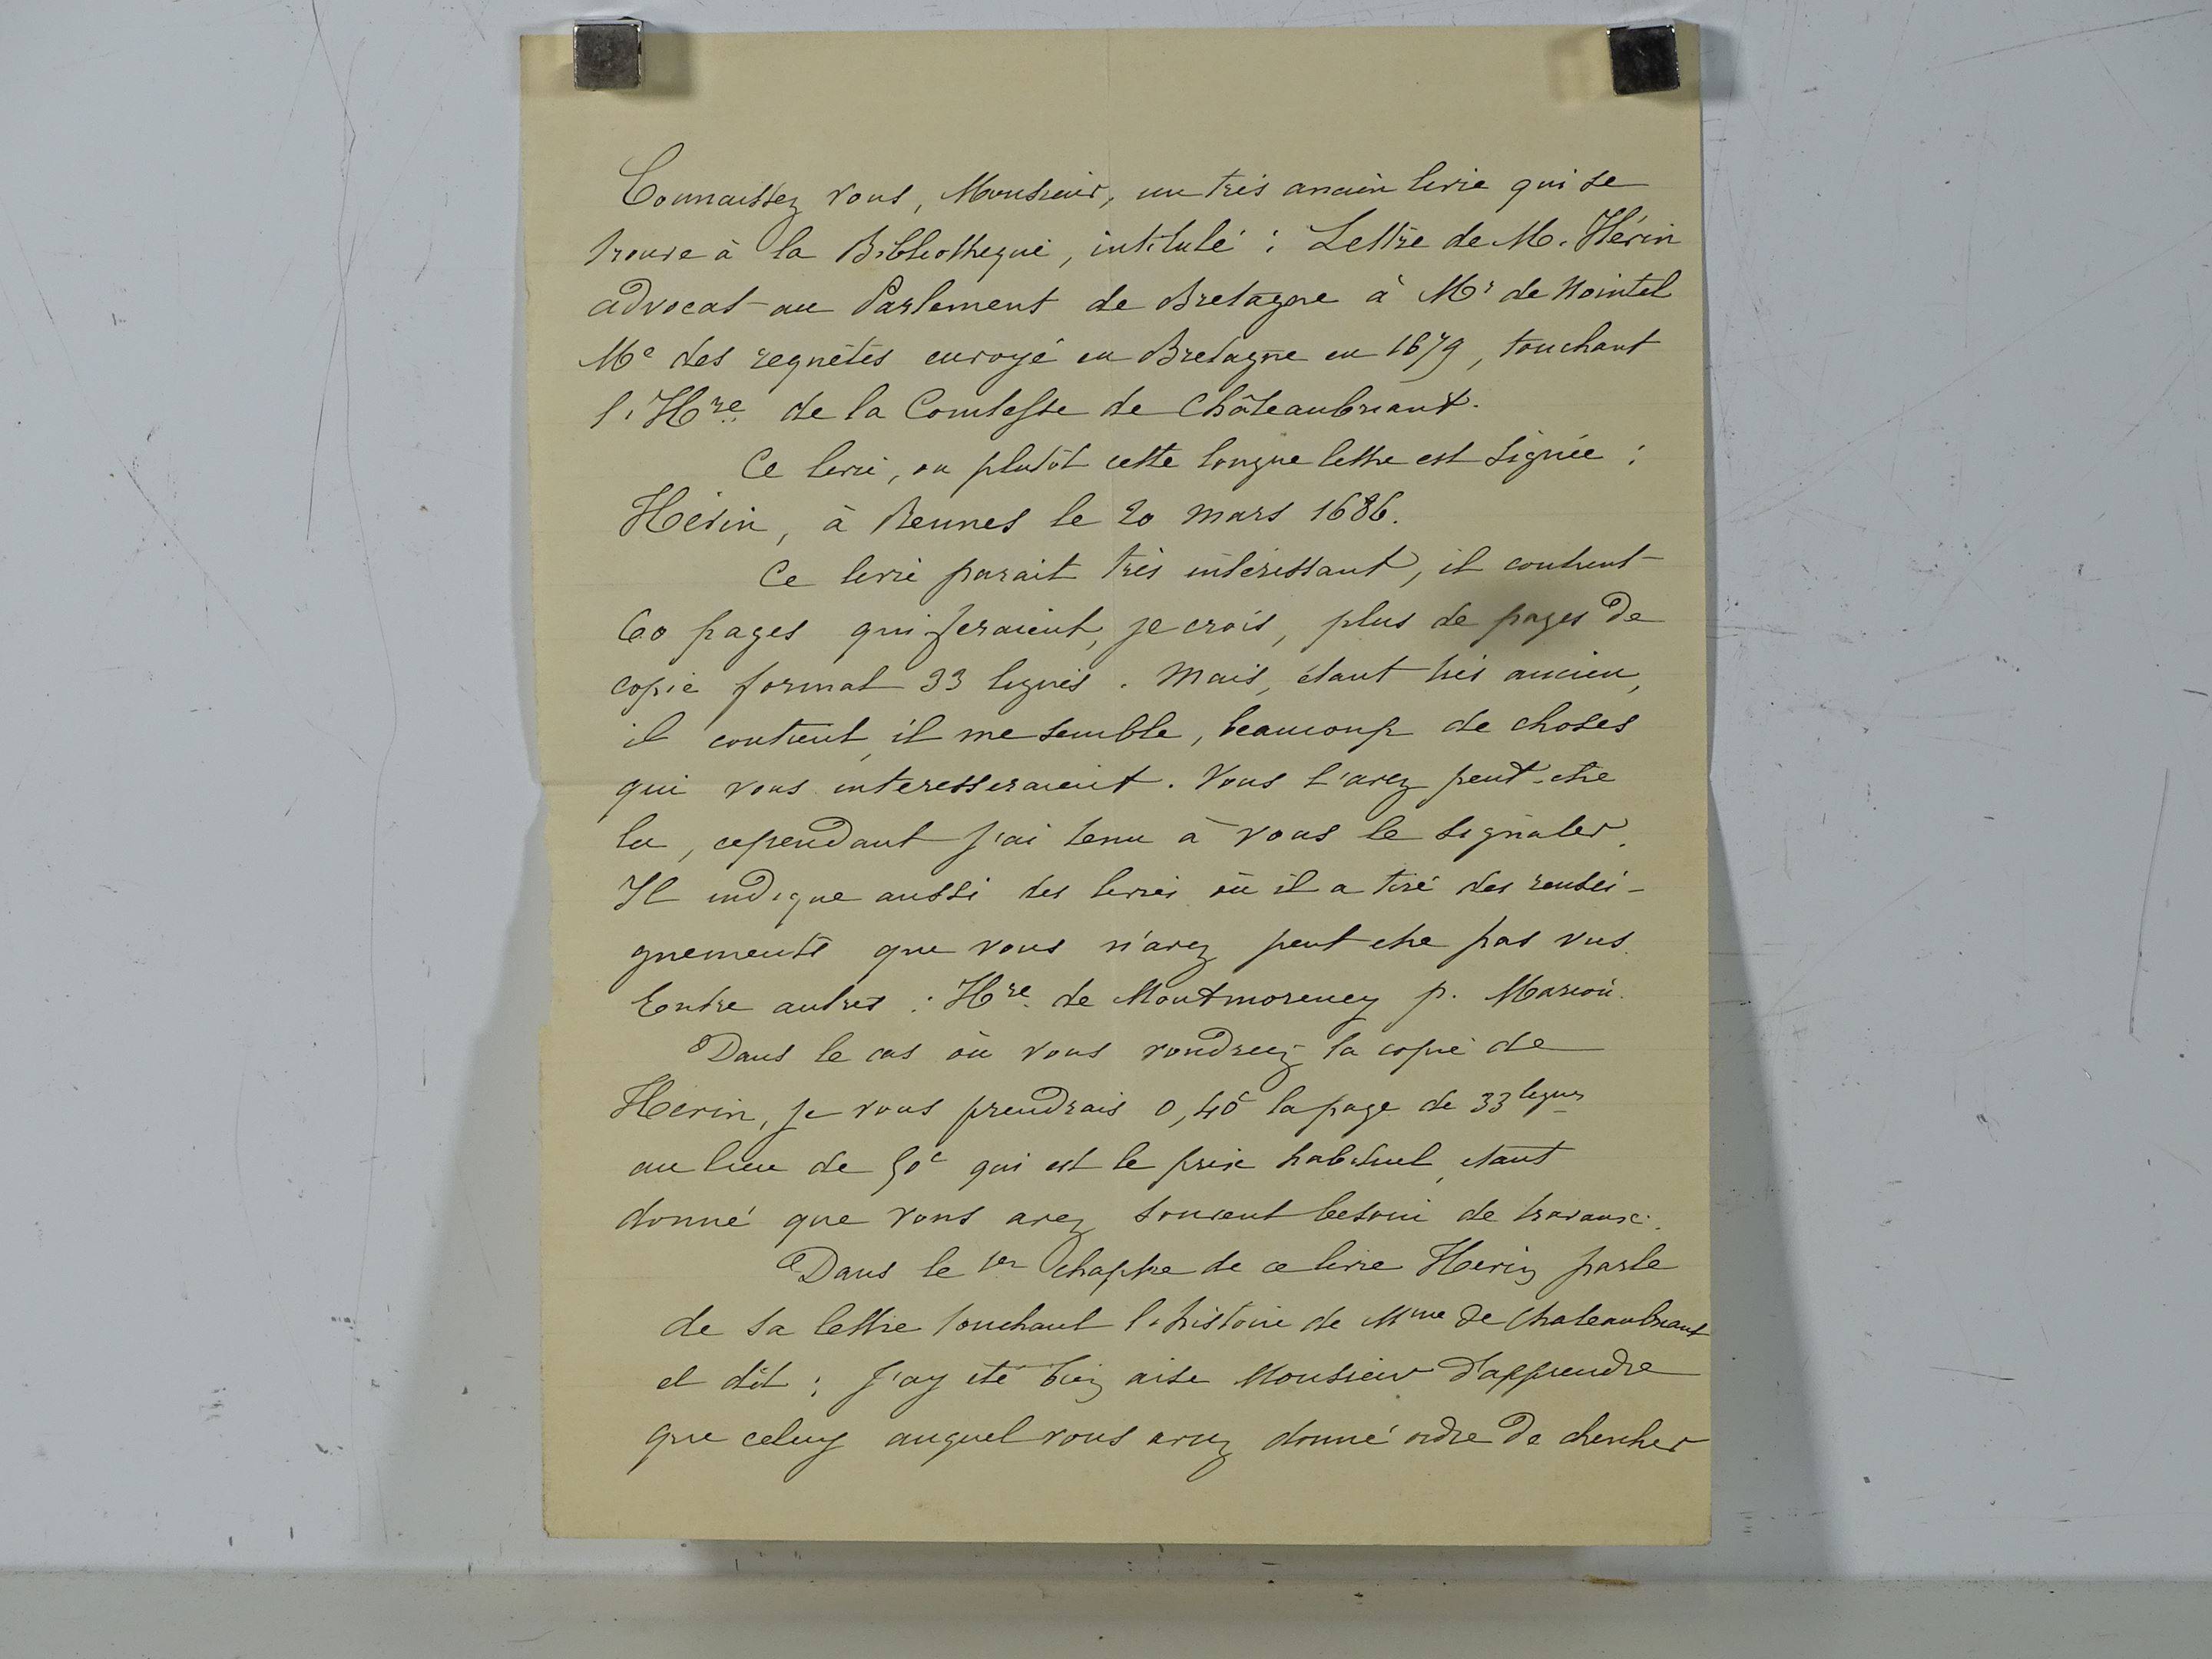 Connaissez vous, Monsieur, un très ancien livre qui se
trouve à la Bibliothèque, intitulé : Lettre de M. Hévin
advocat au Parlement de Bretagne à Mr de Nointel
Me des requêtes envoyé en Bretagne en 1679, touchant
l'Hre de la Comtesse de Châteaubriant.
Ce livre, ou plutôt cette longue lettre est signée :
Hévin, à Rennes le 20 mars 1686.
Ce livre parait très intéressant, il contient
60 pages qui feraient, je crois, plus de pages de
copie format 33 lignes. Mais, étant très ancien,
il contient, il me semble, beaucoup de choses
qui vous interesseraient. Vous l'avez peut-etre
lu, cependant j'ai tenu à vous le signaler.
Il indique aussi des livres où il a tiré des rensei-
gnements que vous n'avez peut etre pas vus.
Entre autres : Hre de Montmorency p. Marion.
Dans le cas où vous voudriez la copie de
Hevin, je vous prendrais 0,40c la page de 33 lignes
au lieu de 50c qui est le prix habituel, étant
donné que vous avez souvent besoin de travaux.
Dans le 1er chaptre de ce livre Hevin parle
de sa lettre touchant l'histoire de Mme de Chateaubriant
et dit : j'ay été bien aise Monsieur d'apprendre
que celuy auquel vous aviez donné ordre de chercher